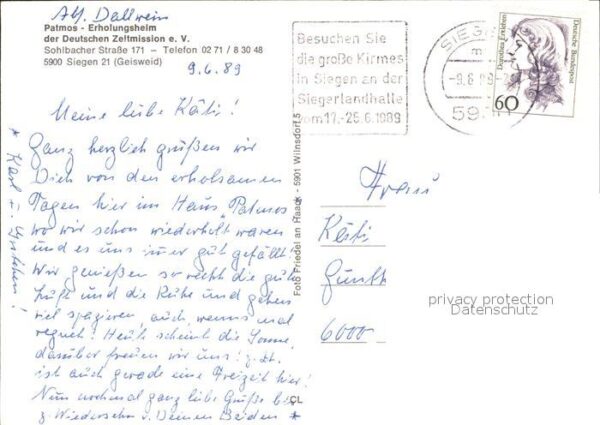 Abs. Dallwein
Patmos - Erholungsheim
der Deutschen Zeltmission e. V.
Sohlbacher Straße 171 — Telefon 02 71 / 8 30 48
5900 Siegen 21 (Geisweid)
9.6.89
Meine liebe Käti!
Ganz herzlich grüßen wir
Dich von den erholsamen
Tagen hier im Haus "Patmos"
wo wir schon wiederholt waren
und es uns immer gut gefällt!
Wir genießen so recht die gute
Luft und die Ruhe und gehen
viel spazieren, auch wenns mal
regnet! Heute scheint die Sonne,
darüber freuen wir uns! z. Zt.
ist auch gerade eine Freizeit hier!
Nun nochmal ganz liebe Grüße bis
z. Wiedersehn v. Deinen Beiden
Karl u.
Foto Friedel an Haack - 5901 Wilnsdorf 5
CL
Besuchen Sie
die große Kirmes
in Siegen an der
Siegerlandhalle
vom 17.-25.6.1989
SIEGEN
-9.6.89
59
Dorothea Erxleben
Deutsche Bundespost
60
Frau
Käti
Günth
6000
privacy protection
Datenschutz